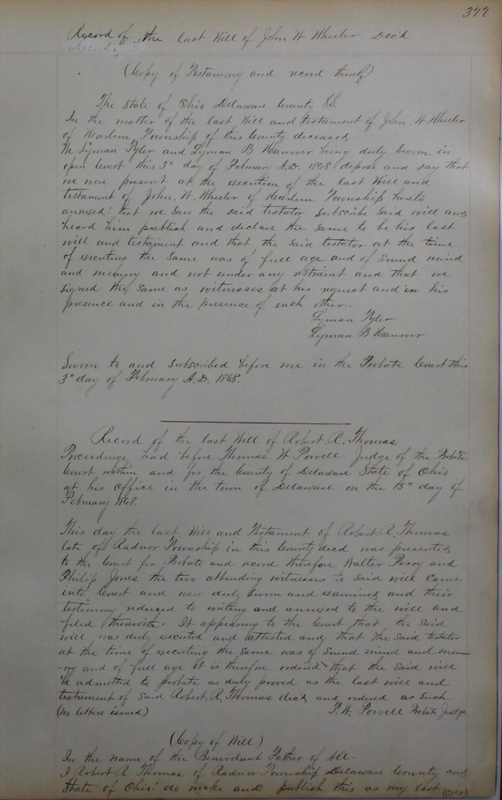 377
Record of the last Will of John W Wheeler Dec'd
(Copy of Testamony and record thereof)
The State of Ohio Delaware County SS.
In the matter of the last Will and testament of John. W. Wheeler
of Harlem Township of this County deceased,
We Lyman Tyler and Lyman B Hanover being duly Sworn in
open Court this 3rd day of February A.D. 1868 depose and say that
we were present at the execution of the last Will and
testament of John. W. Wheeler of Harlem Township hereto
annexed: that we saw the said testator Subscribe Said will and
heard him publish and declare the Same to be his last
will and testament and that the Said testator at the time
of executing the Same was of full age and of Sound mind
and memory and not under any restraint and that we
signed the Same as witnesses at his request and in his
presence and in the presence of each other.
Lyman Tyler
Lyman B Hanover
Sworn to and Subscribed before me in the Probate Court this
3rd day of February A.D. 1868.
Record of the last Will of Robert. R. Thomas
Proceedings had before Thomas W Powell Judge of the Probate
Court within and for the County of Delaware State of Ohio
at his office in the town of Delaware on the 15th day of
February 1868
This day the last Will and Testament of Robert. R. Thomas
late of Radnor Township in this County decd was presented
to the Court for Probate and record therefore Walter Perry and
Philip Jones the two attending witnesses to Said will came
into Court and were duly Sworn and examined and their
testimony reduced to writing and annexed to the will and
filed therewith. It appearing to the Court that the Said
will was duly executed and attested and that the Said testator
at the time of executing the Same was of Sound mind and mem
-ory and of full age it is therefore ordered that the Said will
be admitted to probate as duly proved as the last will and
testament of Said Robert. R. Thomas decd and ordered as Such.
(No letters issued) T. W. Powell Probate Judge
(Copy of Will)
In the name of the Benevolent Father of All-
I Robert. R Thomas of Radnor Township Delaware County and
State of Ohio: do make and publish this as my last
(over)